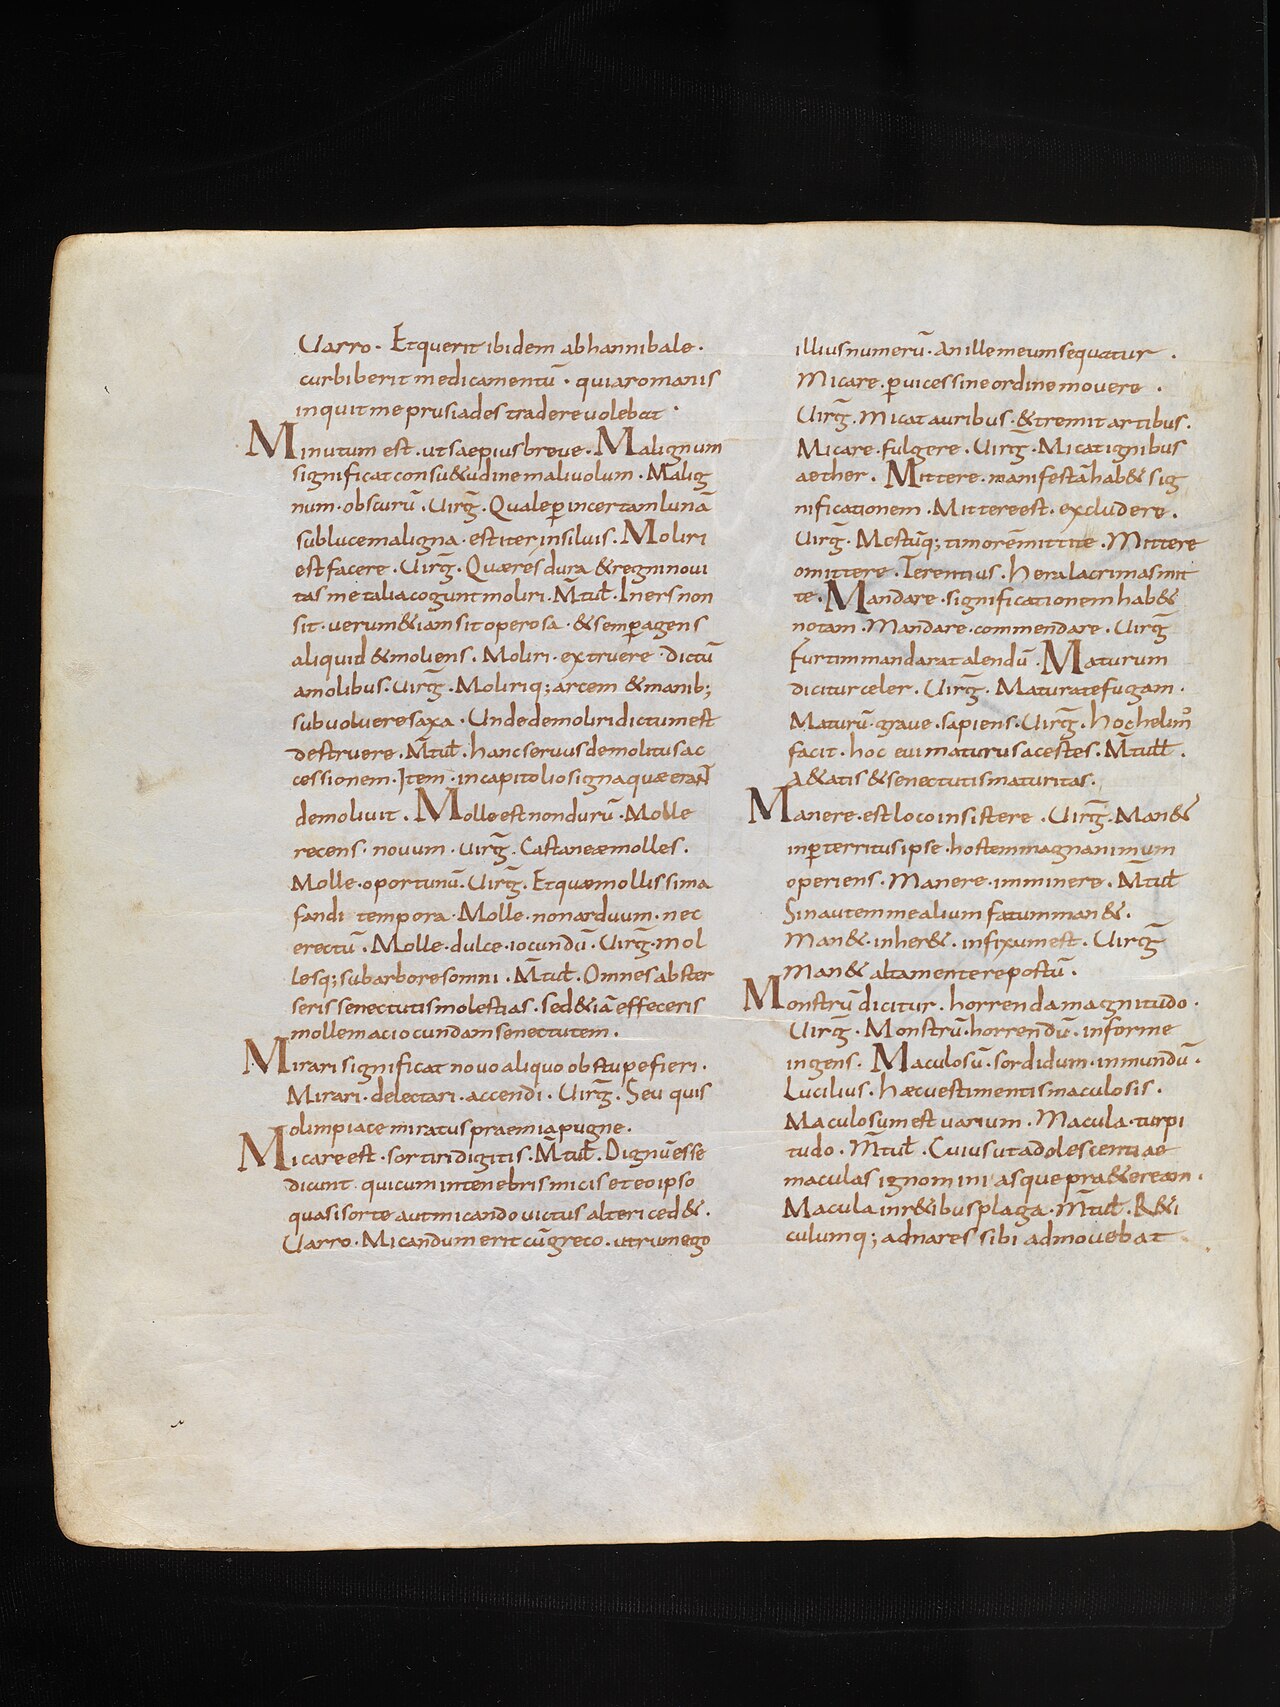 Uarro. Et querit ibidem ab hannibale.
cur biberit medicamentū. quia romanis
inquit me prusiades tradere volebat.
Minutum est. ut saepius breve. Malignum
significat consu&udine malivolum. Malig
num. obscurū. Uirḡ. Quale p̄ incertam lunā
sub luce maligna. est iter in silvis. Moliri
est facere. Uirḡ. Quae res dura & regni novi
tas me talia cogunt moliri. M̄ tul̄. Iners non
sit. verum &iam sit operosa. & semp̄ agens
aliquid & moliens. Moliri. extruere. dictū
a molibus. Uirḡ. Moliriq; arcem & manib;
subvolvere saxa. Unde demoliri dictum est
destruere. M̄ tul̄. hanc servus demolitus ac
cessionem. Item. in capitolio signa quae erant
demolivit. Molle est non durū. Molle
recens. novum. uirḡ. Castaneae molles.
Molle. oportunū. Uirḡ. Et quae mollissima
fandi tempora. Molle. non arduum. nec
erectū. Molle. dulce. iocundū. Uirḡ. mol
lesq; sub arbore somni. M̄ tul̄. Omnes abster
seris senectutis molestias. sed &iā effeceris
mollem ac iocundam senectutem.
Mirari significat novo aliquo obstupefieri.
Mirari. delectari. accendi. Uirḡ. Seu quis
olimpiace miratus praemia pugne.
Micare est. sortiri digitis. M̄ tul̄. Dignū esse
dicunt. quicum in tenebris micis et eo ipso
quasi sorte aut micando victus alteri ced&.
Uarro. Micandum erit cū greco. utrum ego
illius numerū. an ille meum sequatur.
Micare. p̄ vices sine ordine movere.
Uirḡ. Micat auribus. & tremit artibus.
Micare. fulgere. Uirḡ. Micat ignibus
aether. Mittere. manifestā hab& sig
nificationem. Mittere est. excludere.
Uirḡ. Mestūq; timorē mittite. Mittere
omittere. Terentius. hera lacrimas mit
te. Mandare. significationem hab&
notam. Mandare. commendare. Uirg
furtim mandarat alendū. Maturum
dicitur celer. Uirḡ. Maturate fugam.
Maturū. grave. sapiens. Uirḡ. hoc helim̄
facit. hoc evi maturus acestes. M̄ tull̄.
A &atis & senectutis maturitas.
Manere. est loco insistere. Uirḡ. Man&
inp̄territus ipse. hostem magnanimum
operiens. Manere. imminere. M̄ tul̄
Sin autem me alium fatum man&.
Man&. inher&. infixum est. Uirḡ
Man& alta mente repostū.
Monstrū dicitur. horrenda magnitudo.
Uirḡ. Monstrū. horrendū. informe
ingens. Maculosū. sordidum. inmundū.
Lucilius. haec vestimentis maculosis.
Maculosum est varium. Macula. turpi
tudo. M̄ tul̄. Cuius ut adolescentiae
maculas ignominiasque pra&ereom.
Macula in r&ibus plaga. M̄ tul̄. R&i
culumq; ad nares sibi admovebat